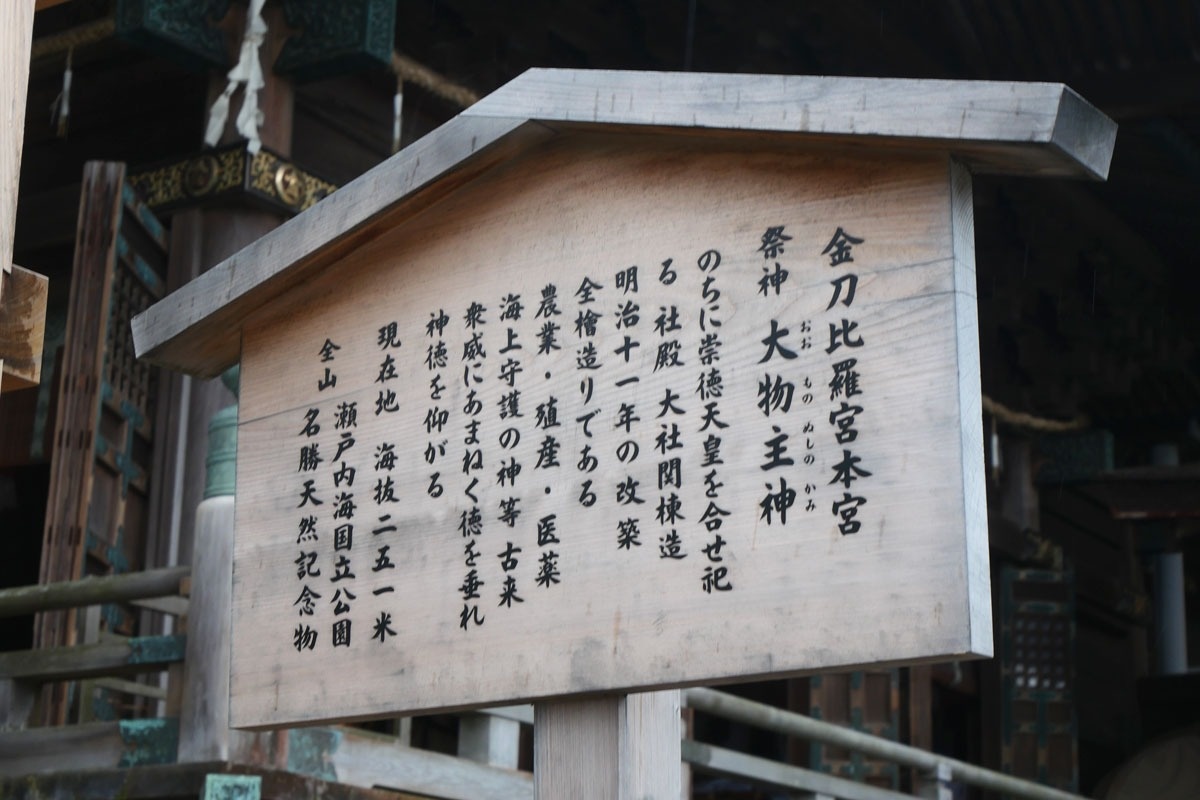 金刀比羅宮本宮
祭神 大物主神
おお ものぬしの かみ
のちに崇徳天皇を合せ祀
る 社殿 大社関棟造
明治十一年の改築
全檜造りである
農業・殖産・医薬
海上守護の神等古来
衆威にあまねく徳を垂れ
神徳を仰がる
現在地 海抜二五一米
全山 瀬戸内海国立公園
名勝天然記念物